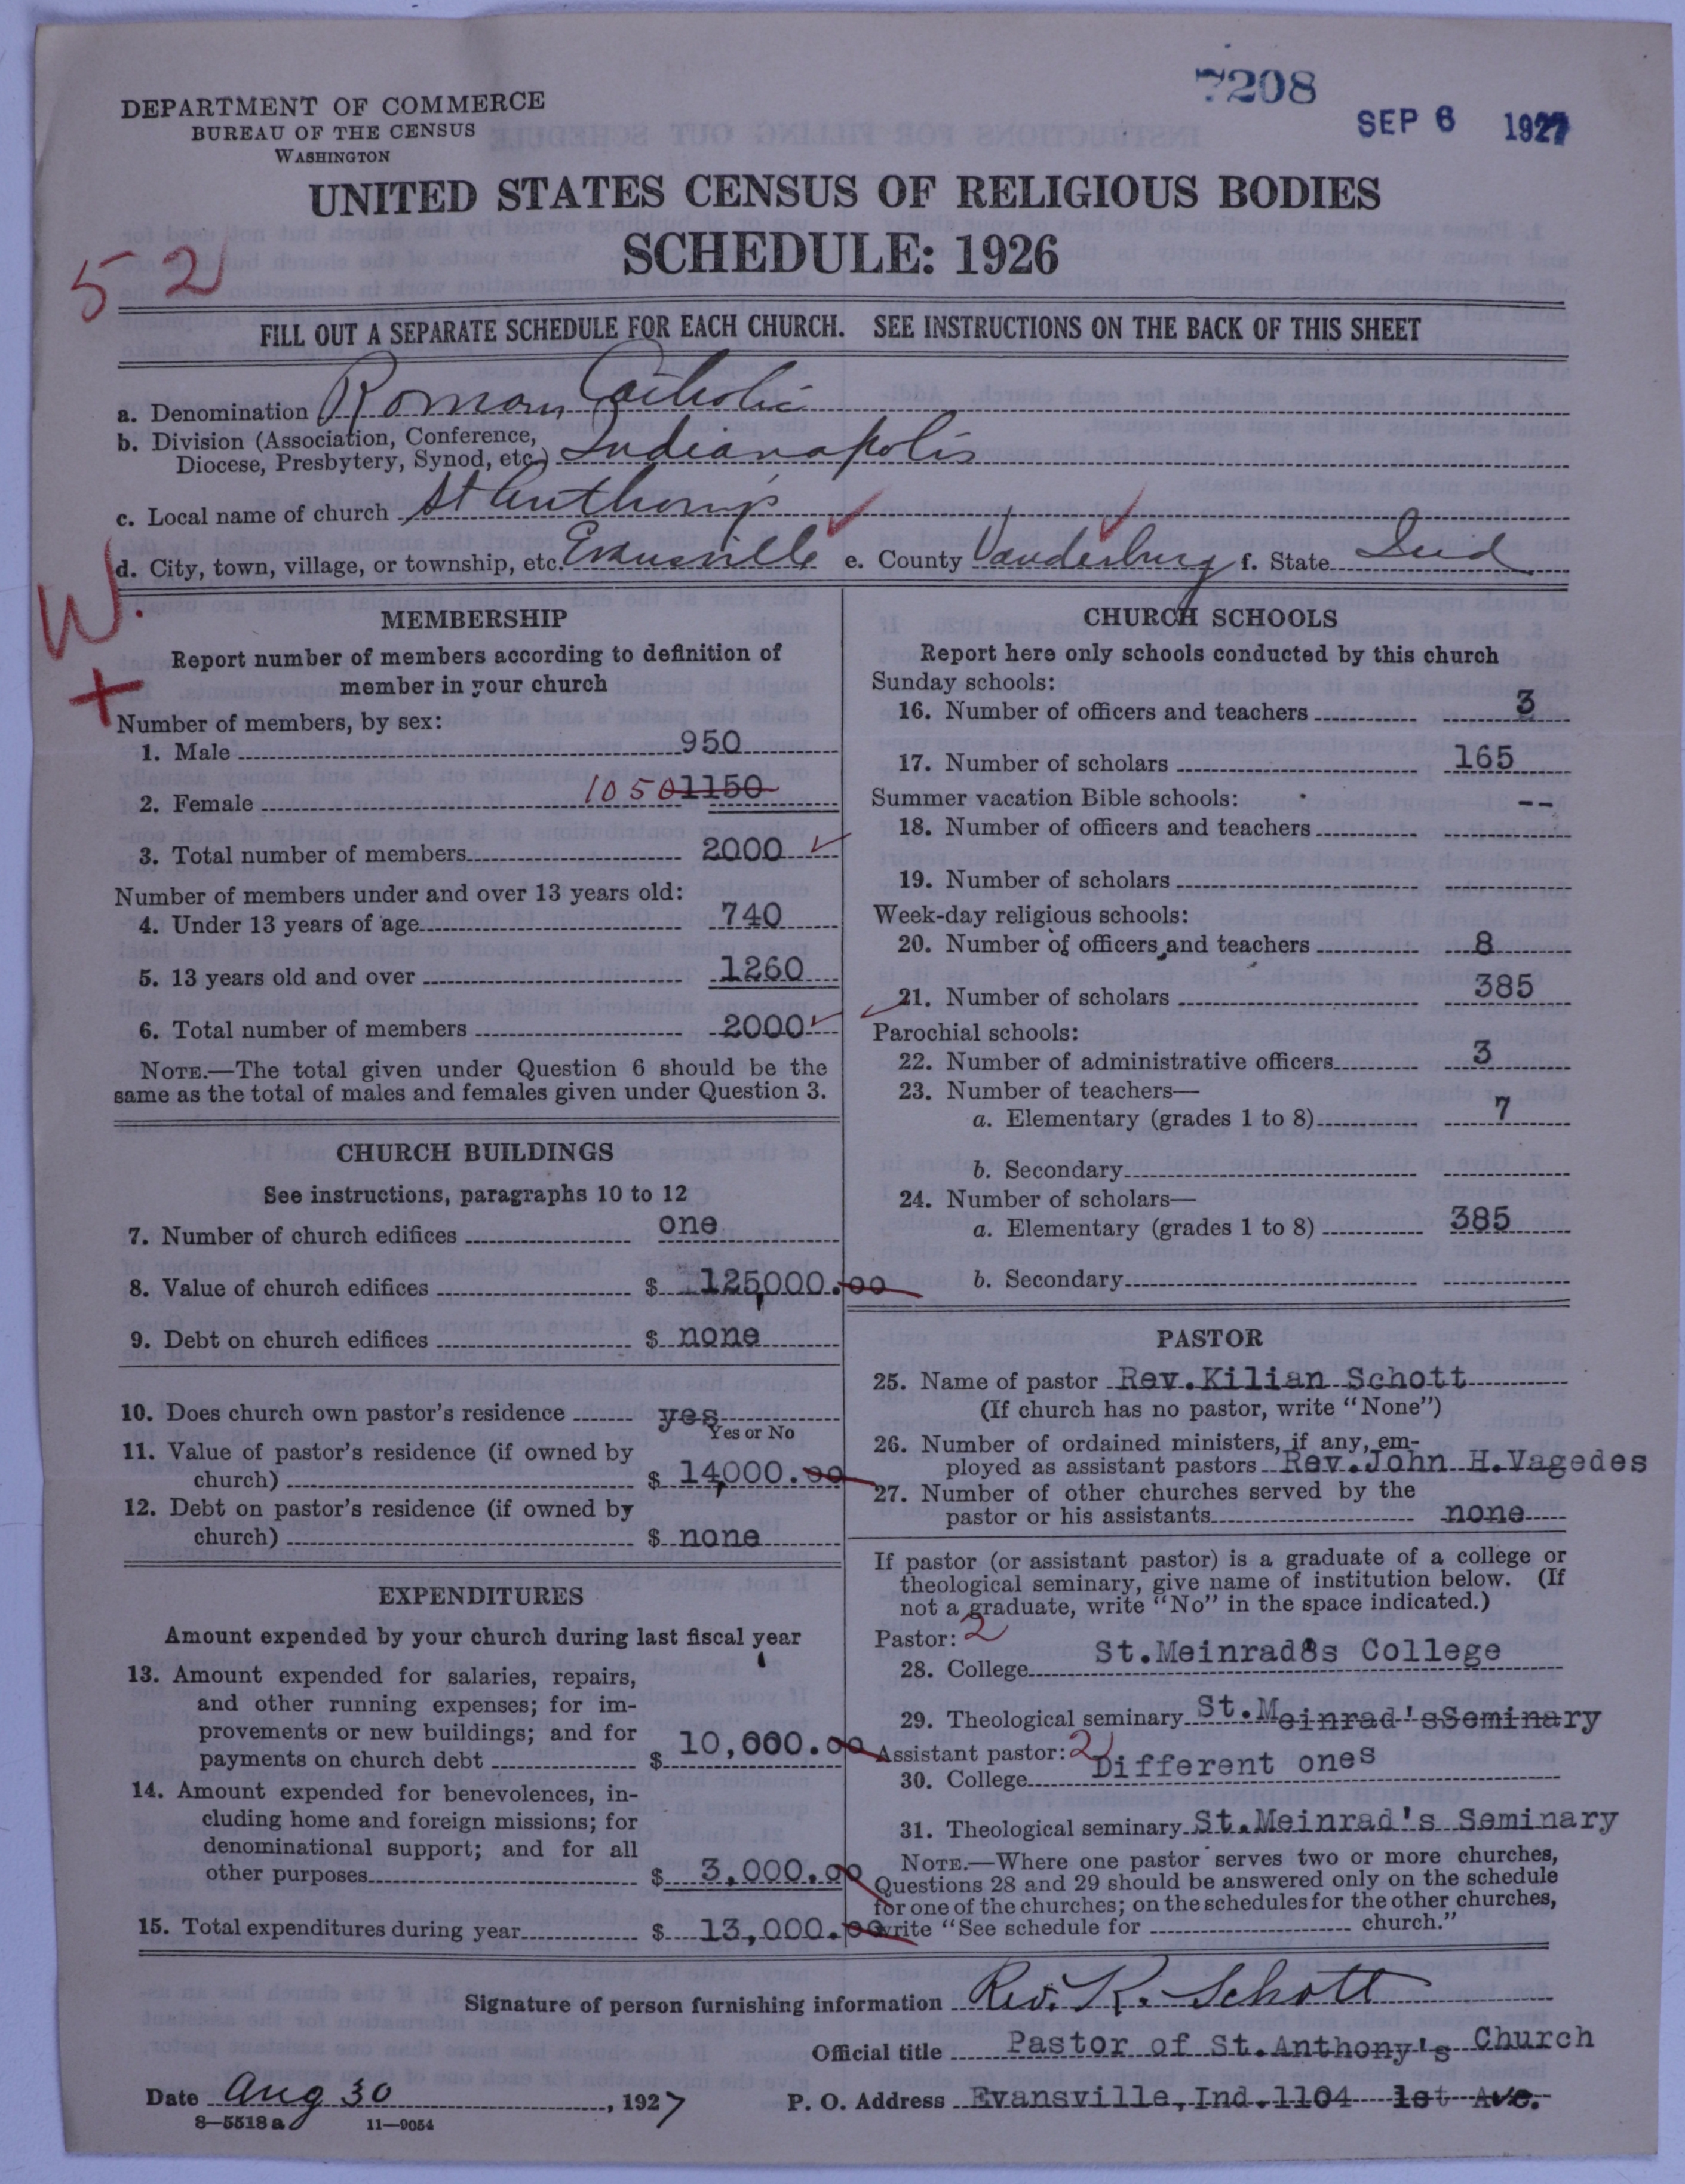 7208
SEP 6 1927
DEPARTMENT OF COMMERCE
BUREAU OF THE CENSUS
WASHINGTON
UNITED STATES CENSUS OF RELIGIOUS BODIES
SCHEDULE: 1926
52
FILL OUT A SEPARATE SCHEDULE FOR EACH CHURCH. SEE INSTRUCTIONS ON THE BACK OF THIS SHEET
a. Denomination Roman Catholic
b. Division (Association, Conference,
Diocese, Presbytery, Synod, etc.) Indianapolis
c. Local name of church St Anthony's
d. City, town, village, or township, etc. Evansville e. County Vanderburg f. State Ind
W.
+
MEMBERSHIP
Report number of members according to definition of
member in your church
Number of members, by sex:
1. Male 950
2. Female 1050 1150
3. Total number of members 2000
Number of members under and over 13 years old:
4. Under 13 years of age 740
5. 13 years old and over 1260
6. Total number of members 2000
NOTE.—The total given under Question 6 should be the
same as the total of males and females given under Question 3.
CHURCH BUILDINGS
See instructions, paragraphs 10 to 12
7. Number of church edifices one
8. Value of church edifices $ 125,000.00
9. Debt on church edifices $ none
10. Does church own pastor's residence yes
Yes or No
11. Value of pastor's residence (if owned by
church) $ 14,000.00
12. Debt on pastor's residence (if owned by
church) $ none
EXPENDITURES
Amount expended by your church during last fiscal year
13. Amount expended for salaries, repairs,
and other running expenses; for im-
provements or new buildings; and for
payments on church debt $ 10,000.00
14. Amount expended for benevolences, in-
cluding home and foreign missions; for
denominational support; and for all
other purposes $ 3,000.00
15. Total expenditures during year $ 13,000.00
CHURCH SCHOOLS
Report here only schools conducted by this church
Sunday schools:
16. Number of officers and teachers 3
17. Number of scholars 165
Summer vacation Bible schools: --
18. Number of officers and teachers
19. Number of scholars
Week-day religious schools:
20. Number of officers and teachers 8
21. Number of scholars 385
Parochial schools:
22. Number of administrative officers 3
23. Number of teachers—
a. Elementary (grades 1 to 8) 7
b. Secondary
24. Number of scholars—
a. Elementary (grades 1 to 8) 385
b. Secondary
PASTOR
25. Name of pastor Rev.Kilian Schott
(If church has no pastor, write "None")
26. Number of ordained ministers, if any, em-
ployed as assistant pastors Rev.John H.Vagedes
27. Number of other churches served by the
pastor or his assistants none
If pastor (or assistant pastor) is a graduate of a college or
theological seminary, give name of institution below. (If
not a graduate, write "No" in the space indicated.)
Pastor: 2
28. College St.Meinrad8s College
29. Theological seminary St.Meinrad'sSeminary
Assistant pastor: 2
30. College Different ones
31. Theological seminary St.Meinrad's Seminary
NOTE.—Where one pastor serves two or more churches,
Questions 28 and 29 should be answered only on the schedule
for one of the churches; on the schedules for the other churches,
write "See schedule for church."
Signature of person furnishing information Rev. K. Schott
Official title Pastor of St.Anthony's Church
Date Aug 30, 1927 P. O. Address Evansville,Ind.1104 1st Ave.
8—5518 a 11—9054